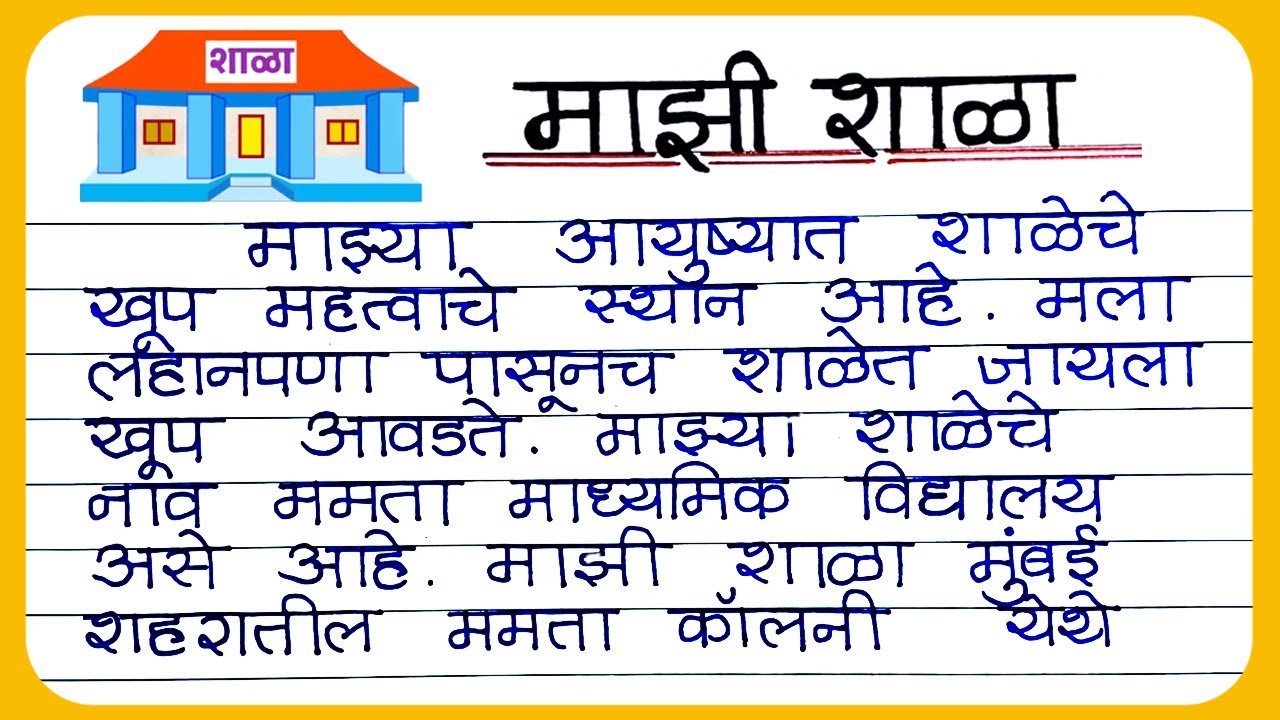 शाळा
माझी शाळा
माझ्या आयुष्यात शाळेचे
खूप महत्वाचे स्थान आहे. मला
लहानपणा पासूनच शाळेत जायला
खूप आवडते. माझ्या शाळेचे
नाव ममता माध्यमिक विद्यालय
असे आहे. माझी शाळा मुंबई
शहरातील ममता कॉलनी येथे